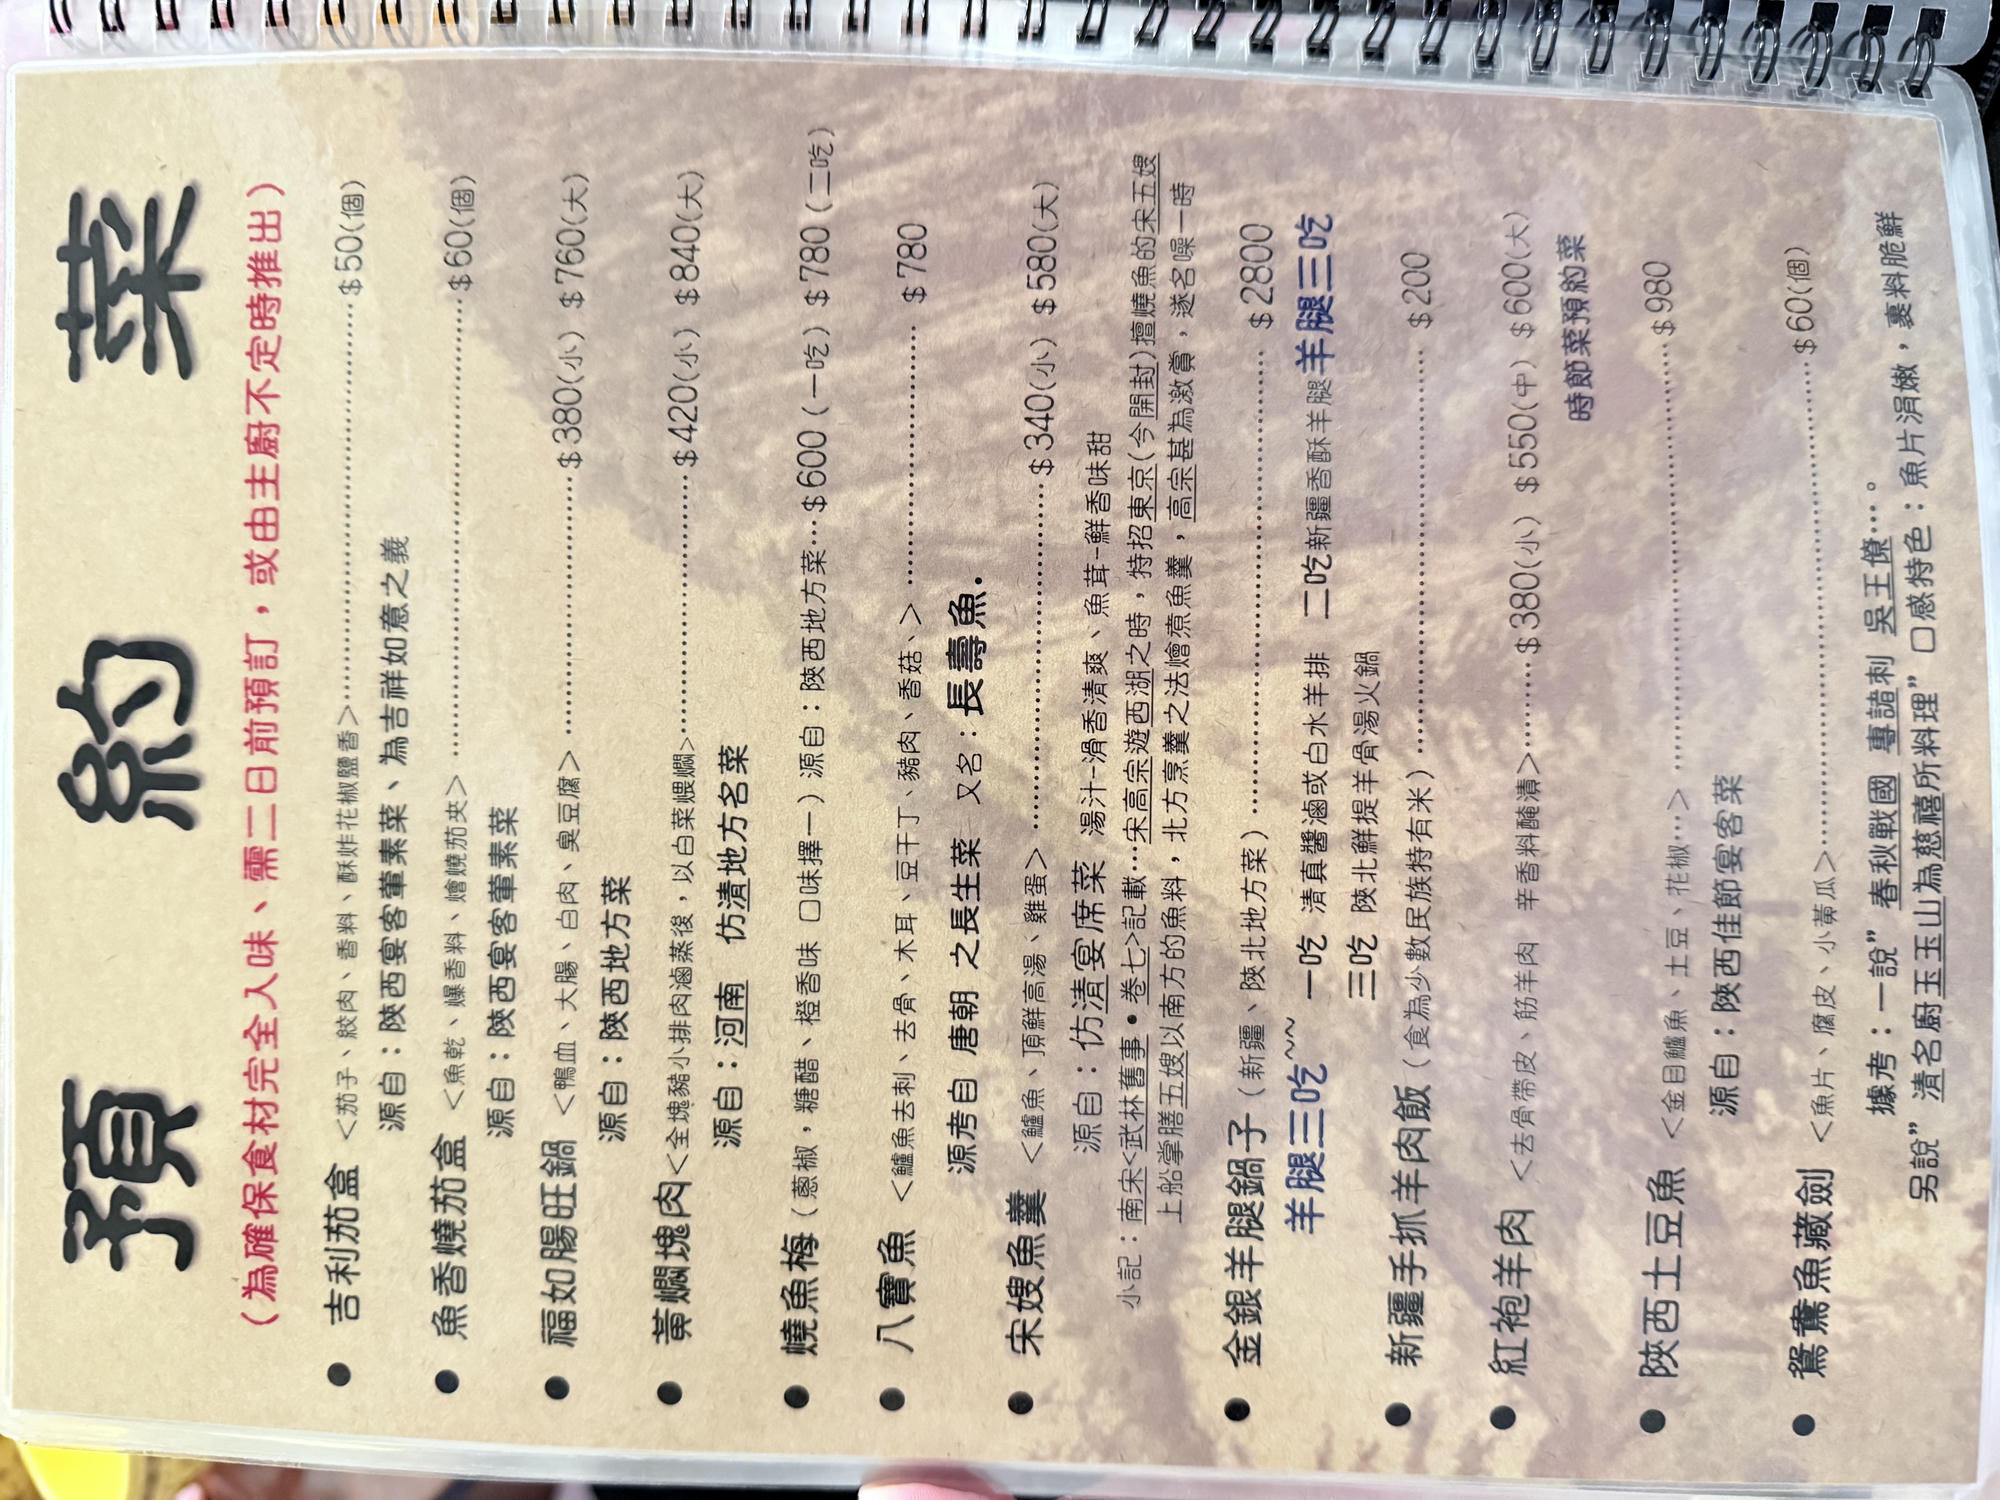 預約菜
(為確保食材完全入味、需二日前預訂，或由主廚不定時推出)
● 吉利茄盒 <茄子、絞肉、香料、酥炸花椒鹽香>……………$50(個)
源自：陝西宴客葷素菜、為吉祥如意之義
● 魚香燒茄盒 <魚乾、爆香料、燴燒茄夾>……………$60(個)
源自：陝西宴客葷素菜
● 福如腸旺鍋 <鴨血、大腸、白肉、臭豆腐>……………$380(小) $760(大)
源自：陝西地方菜
● 黃燜塊肉<全塊豬小排肉滷蒸後，以白菜煨燜>……………$420(小) $840(大)
源自：河南 仿清地方名菜
● 燒魚梅 (蔥椒，糖醋、橙香味 口味擇一) 源自：陝西地方菜…$600 (一吃) $780 (二吃)
● 八寶魚 <鱸魚去刺、去骨、木耳、豆干丁、豬肉、香菇、>……………$780
源考自 唐朝 之長生菜 又名：長壽魚.
● 宋嫂魚羹 <鱸魚、頂鮮高湯、雞蛋>……………$340(小) $580(大)
源自：仿清宴席菜 湯汁-滑香清爽、魚茸-鮮香味甜
小記：南宋<武林舊事•卷七>記載…宋高宗遊西湖之時，特招東京(今開封)擅燒魚的宋五嫂
上船掌膳五嫂以南方的魚料，北方烹羹之法燴煮魚羹，高宗甚為激賞，遂名噪一時
● 金銀羊腿鍋子 (新疆、陝北地方菜)……………$2800
羊腿三吃~~ 一吃 清真醬滷或白水羊排 二吃新疆香酥羊腿羊腿三吃
三吃 陝北鮮提羊骨湯火鍋
● 新疆手抓羊肉飯 (食為少數民族特有米)……………$200
● 紅袍羊肉 <去骨帶皮、筋羊肉 辛香料醃漬>………$380(小) $550(中) $600(大)
時節菜預約菜
● 陝西土豆魚 <金目鱸魚、土豆、花椒…>……………$980
源自：陝西佳節宴客菜
● 鴛鴦魚藏劍 <魚片、腐皮、小黃瓜>……………$60(個)
據考：一說”春秋戰國 專諸刺 吳王僚…。
另說”清名廚王玉山為慈禧所料理”口感特色：魚片涓嫩，裹料脆鮮